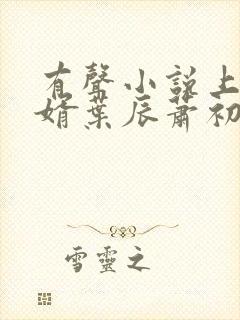 有聲小說上
婿葉辰蕭初
雪靈之